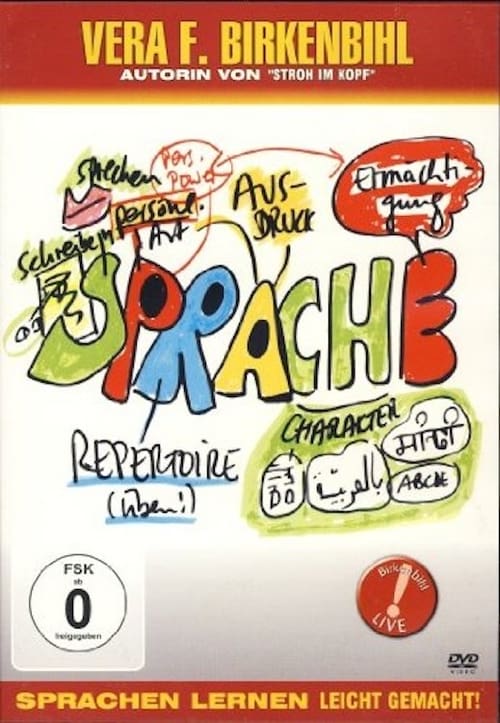 VERA F. BIRKENBIHL
AUTORIN VON "STROH IM KOPF"
sprechen
pers.
Power
AUS-
DRUCK
Ermächti-
gung
persönl.
Art
schreiben
SPRACHE
REPERTOIRE
(üben!)
CHARAKTER
DO
بالعربية
ABCDE
FSK
ab
0
freigegeben
Birkenbihl
!
LIVE
DVD
VIDEO
SPRACHEN LERNEN LEICHT GEMACHT!